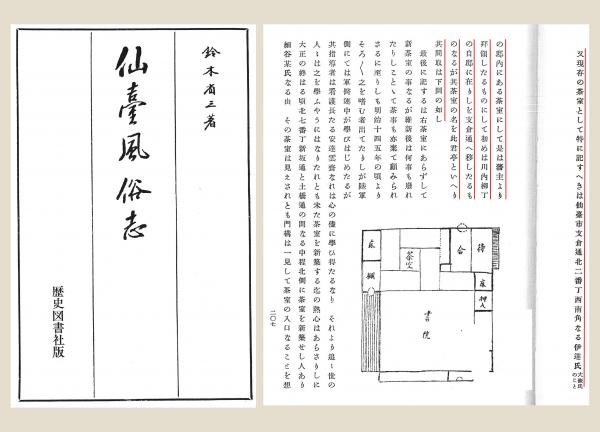 鈴木省三著
仙臺風俗志
歴史図書社版
又現存の茶室として特に記すへきは仙臺市支倉通北二番丁西南角なる伊達氏大條氏のこと
の邸內にある茶室にして是は藩主より
拜領したるものにして初めは川內柳丁
の自邸に在りしを支倉通へ移したるも
のなるが其茶室の名を此君亭といへり
其間取は下圖の如し
最後に記するは右茶室にあらずして
新茶室の事なるが維新後は何事も廢れ
たりしことゝて茶事も亦棄て顧みられ
さるに至りしも明治十四五年の頃より
そろ〳〵之を嗜む者出てたりしが陸軍
側にては軍醫連中が學びはじめたるが
其指導者は看護長たる安達雲齋なれは心の儘に學ひ得たるなり それより追々世の
人々は之を學ふやうにはなりたれとも未た茶室を新築する迄の熱心はあらさりしに
大正の終はる頃北七番丁新坂通と土橋通の間なる中程北側に茶室を新築せし人あり
細谷某氏なる由 その茶室は見えされとも門構は一見して茶室の入口なることを想
待
合
床
押入
茶室
床
棚
書院
二〇七